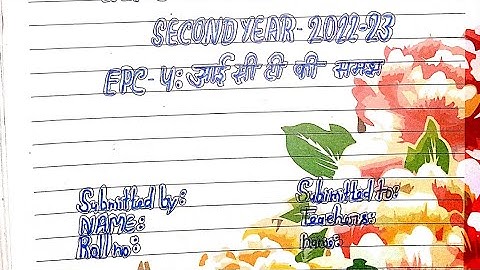 SECOND YEAR - 2022-23
EPC - 4: आई सी टी की समझ
Submitted by:
Submitted to:
NAME:
Teachers:
Roll no:
name: